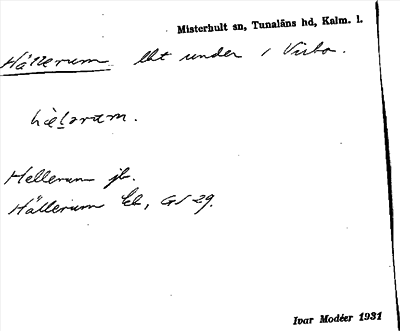 Misterhult sn, Tunaläns hd, Kalm. l.
Hällerum lht under 1 Virbo.
hæləram.
Hellerum jb.
Hällerum Ek, GS 29.
Ivar Modéer 1931